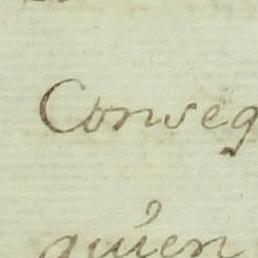 Conseq
quien